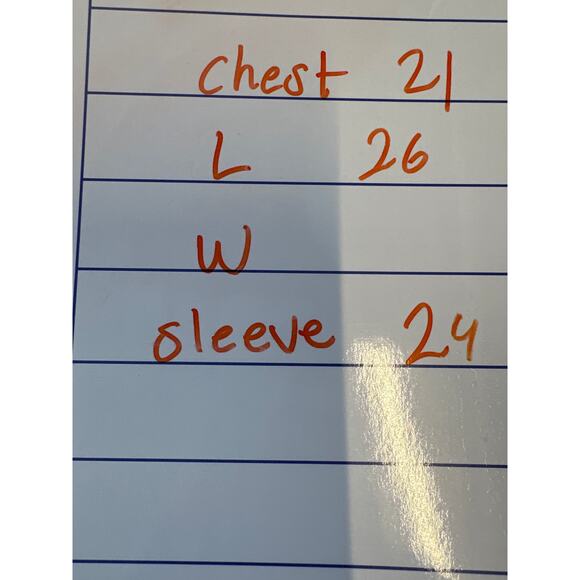 chest 21
L 26
W
sleeve 24